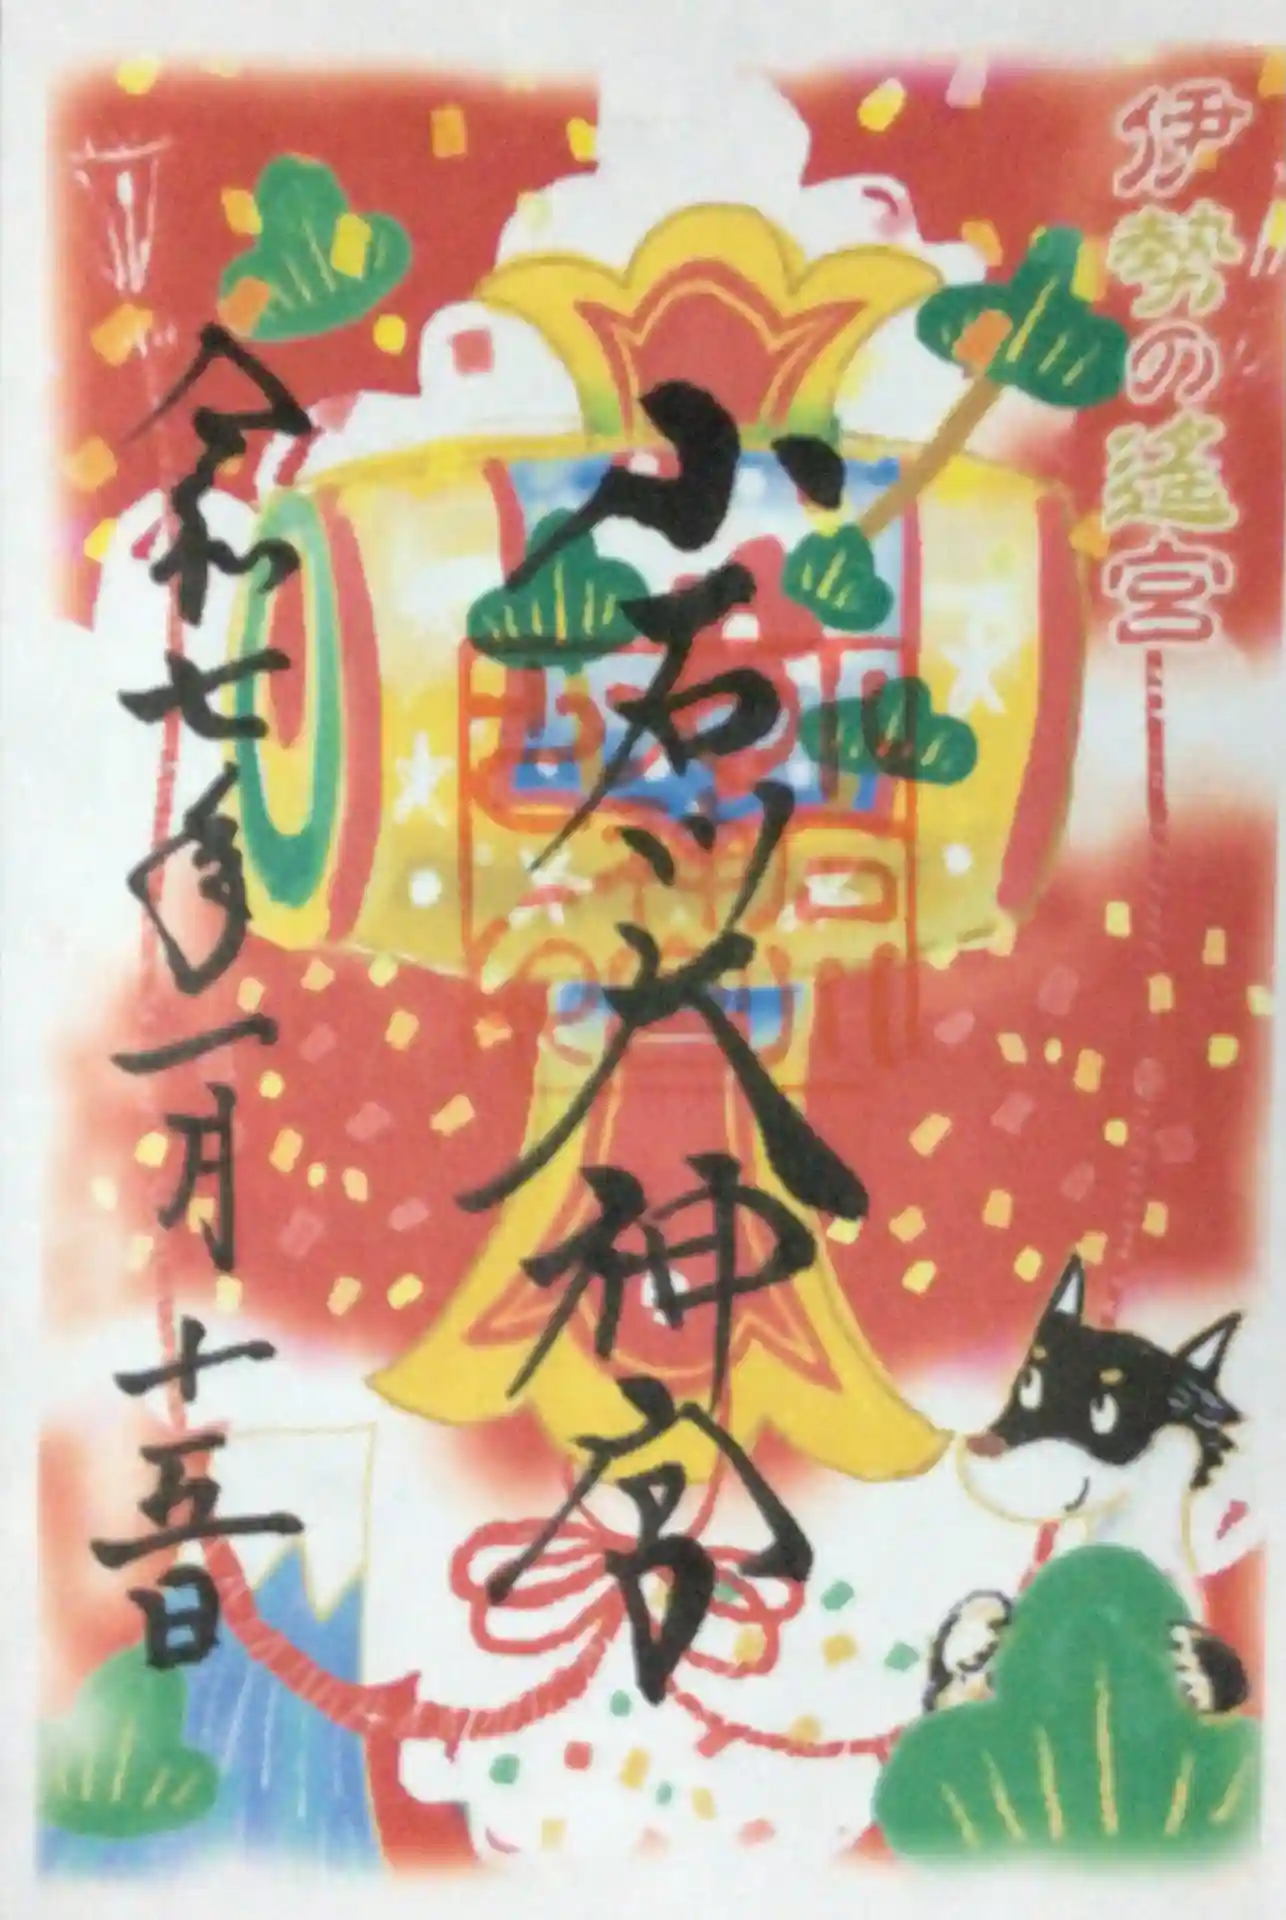 伊勢の遙宮
小石川大神宮
令和七年一月十五日